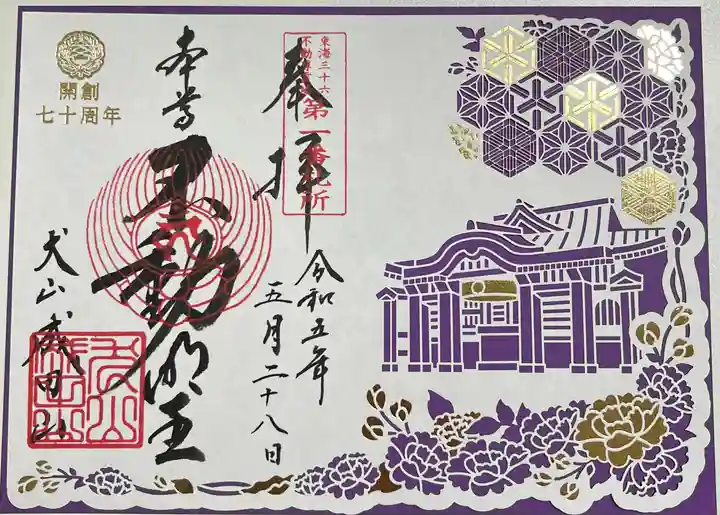 奉拝
東海三十六
不動尊霊場
第一番札所
令和五年
五月二十八日
本尊
不動明王
犬山成田山
開創
七十周年